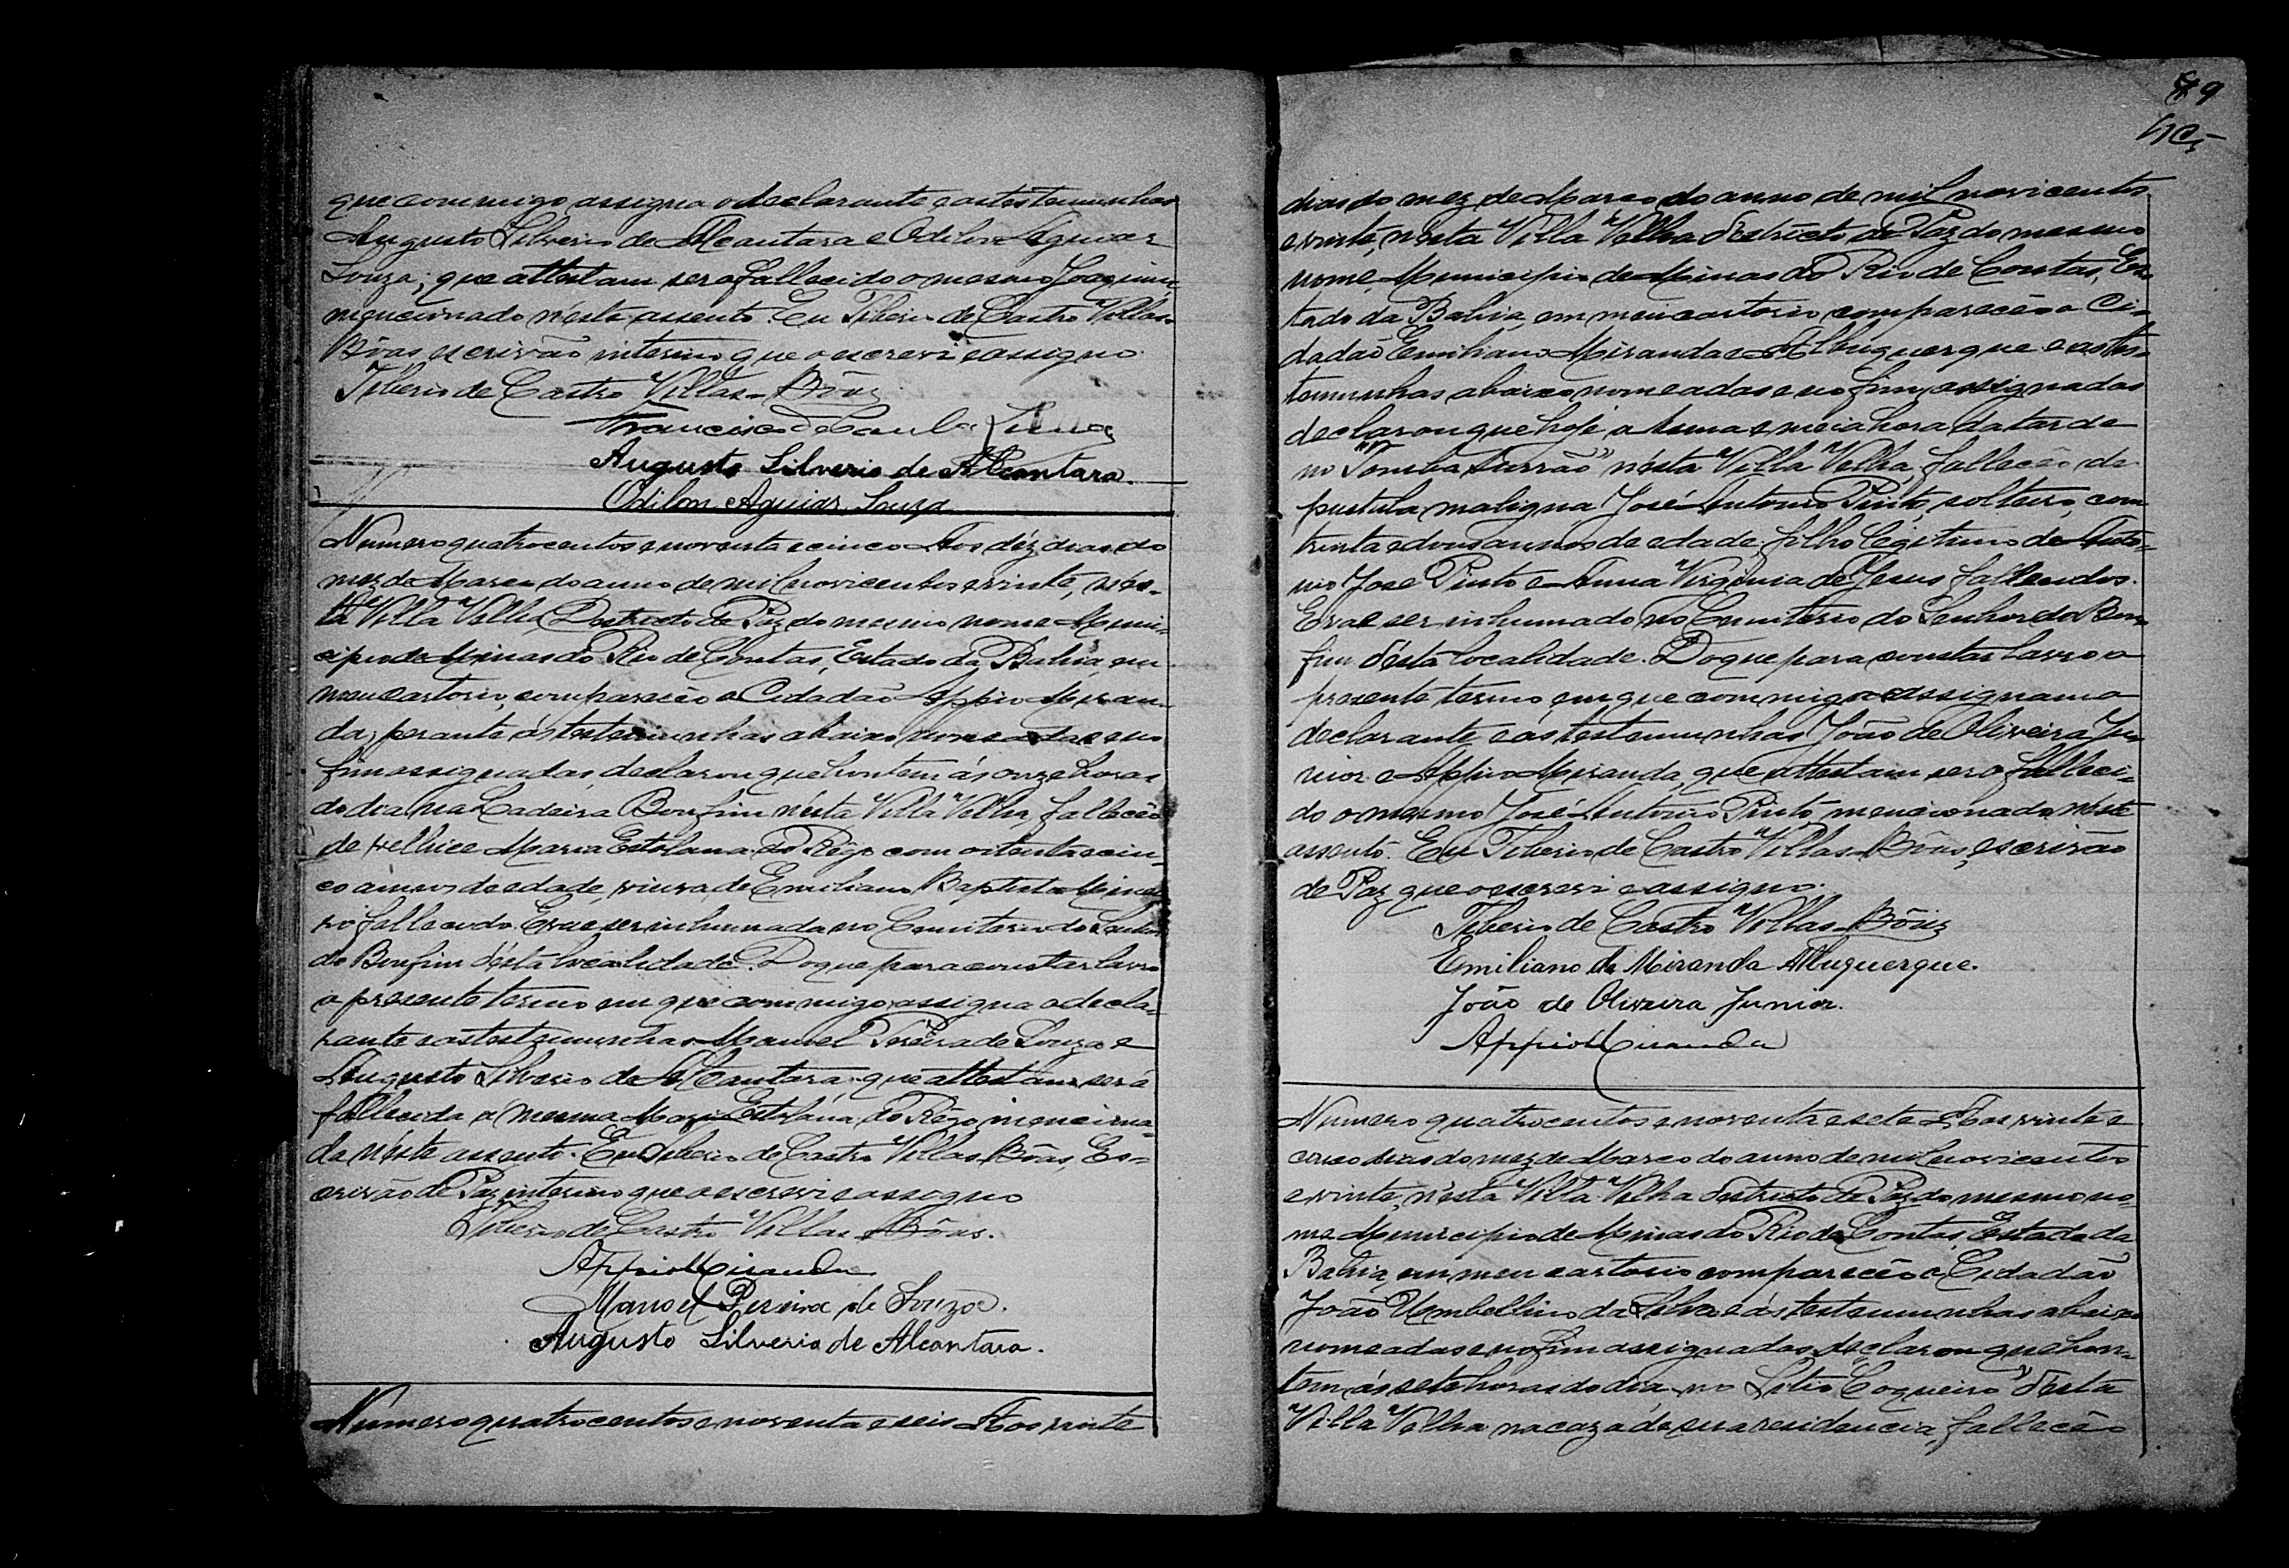 que commigo assigna o declarante e as testemunhas
Augusto Silverio de Alcantara e Odilon Aguiar
Souza; que attestam ser o fallecido o mesmo Joaquim
mencionado nésta assento. Eu Tiberio de Castro Villas-
Bôas escrivão interino que o escrevi e assigno
Tiberio de Castro Villas-Bôas
Francisco de Paula
Augusto Silverio de Alcantara.
Odilon Aguiar Souza
Numero quatrocentos e noventa e cinco Aos déz dias do
mez de Março do anno de mil novicentos e vinte, nés-
ta Villa Velha, Destricto de Paz do mesmo nome Muni-
cipio de Minas do Rio de Contas, Estado da Bahia, em
meu cartorio, compareceo o Cidadão Appio Miran-
da, perante ás testemunhas abaixo nomeadas e no
fim assignadas, declarou que hontem ás onze horas
do dia na Ladeira Bomfim nésta Villa Velha, falleceo
de velhice Maria Estolana do Rêgo com oitenta e cin-
co annos de edade, viuva de Emiliano Baptista Minei-
ro fallecido. E vae ser inhumada no Cemiterio do Senhor
do Bomfim désta localidade. Do que para constar lavro
o presente termo em que commigo assigna o decla-
rante e as testemunhas Manoel Pereira de Souza e
Augusto Silverio de Alcantara, que attestam ser a
fallecida a mesma Maria Estolana do Rêgo menciona-
da néste assento. Eu Tiberio de Castro Villas Bôas, Es-
crivão de Paz interino que o escrevi e assigno
Tiberio de Castro Villas Bôas.
Appio Miranda
Manoel Pereira de Souza.
Augusto Silverio de Alcantara.
Numero quatrocentos e noventa e seis Aos vinte
89
dias do mez de Março do anno de mil novicentos
e vinte, nésta Villa Velha destricto de Paz do mesmo
nome, Municipio de Minas do Rio de Contas, Es-
tado da Bahia, em meu cartorio compareceo o Ci-
dadão Emiliano Miranda e Albuquerque e as tes-
temunhas abaixo nomeadas e no fim assignadas
declarou que hoje a huma e meia hora da tarde
no "Tomba Surrão" nésta Villa Velha, falleceo de
pustula maligna José Antonio Pinto, solteiro, com
trinta e dous annos de edade, filho legitimo de Anto-
nio José Pinto e Anna Virginia de Jesus fallecidos.
E vae ser inhumado no Cemiterio do Senhor do Bom-
fim désta localidade. Do que para constar lavro o
presente termo, em que commigo assignam o
declarante e ás testemunhas João de Oliveira Ju-
nior e Appio Miranda, que attestam ser o falleci-
do o mesmo José Antonio Pinto mencionado néste
assento. Eu Tiberio de Castro Villas-Bôas, escrivão
de Paz que o escrevi e assigno.
Tiberio de Castro Villas-Bôas
Emiliano de Miranda Albuquerque.
João de Oliveira Junior.
Appio Miranda
Numero quatrocentos e noventa e sete Aos vinte e
cinco dias do mez de Março do anno de mil novicentos
e vinte, nésta Villa Velha destricto de Paz do mesmo no-
me Municipio de Minas do Rio de Contas, Estado da
Bahia, em meu cartorio compareceo o Cidadão
João Umbellino da Silva e ás testemunhas abaixo
nomeadas e no fim assignadas, declarou que hon-
tem ás sete horas do dia no "Sitio Coqueiro" désta
Villa Velha na caza de sua residencia, falleceo